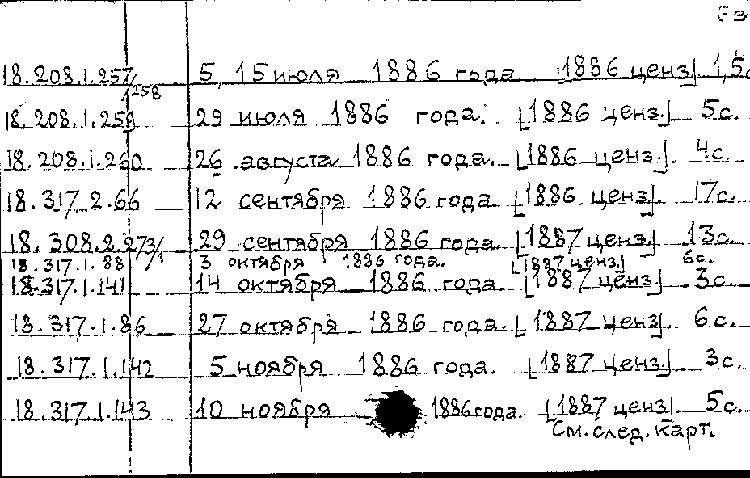 18.208.1.257/258 5, 15 июля 1886 года [1886 ценз] 1,5с
18.208.1.259 29 июля 1886 года. [1886 ценз] 5с.
18.208.1.260 26 августа 1886 года. [1886 ценз.] 4с.
18.317.2.66 12 сентября 1886 года [1886 ценз] 17с.
18.308.2.273/1 29 сентября 1886 года. [1887 ценз] 13с.
18.317.1.88 3 октября 1886 года. [1887 ценз] 6с.
18.317.1.141 14 октября 1886 года. [1887 ценз] 3с.
18.317.1.86 27 октября 1886 года. [1887 ценз] 6с.
18.317.1.142 5 ноября 1886 года. [1887 ценз] 3с.
18.317.1.143 10 ноября 1886 года. [1887 ценз] 5с.
См. след. карт.